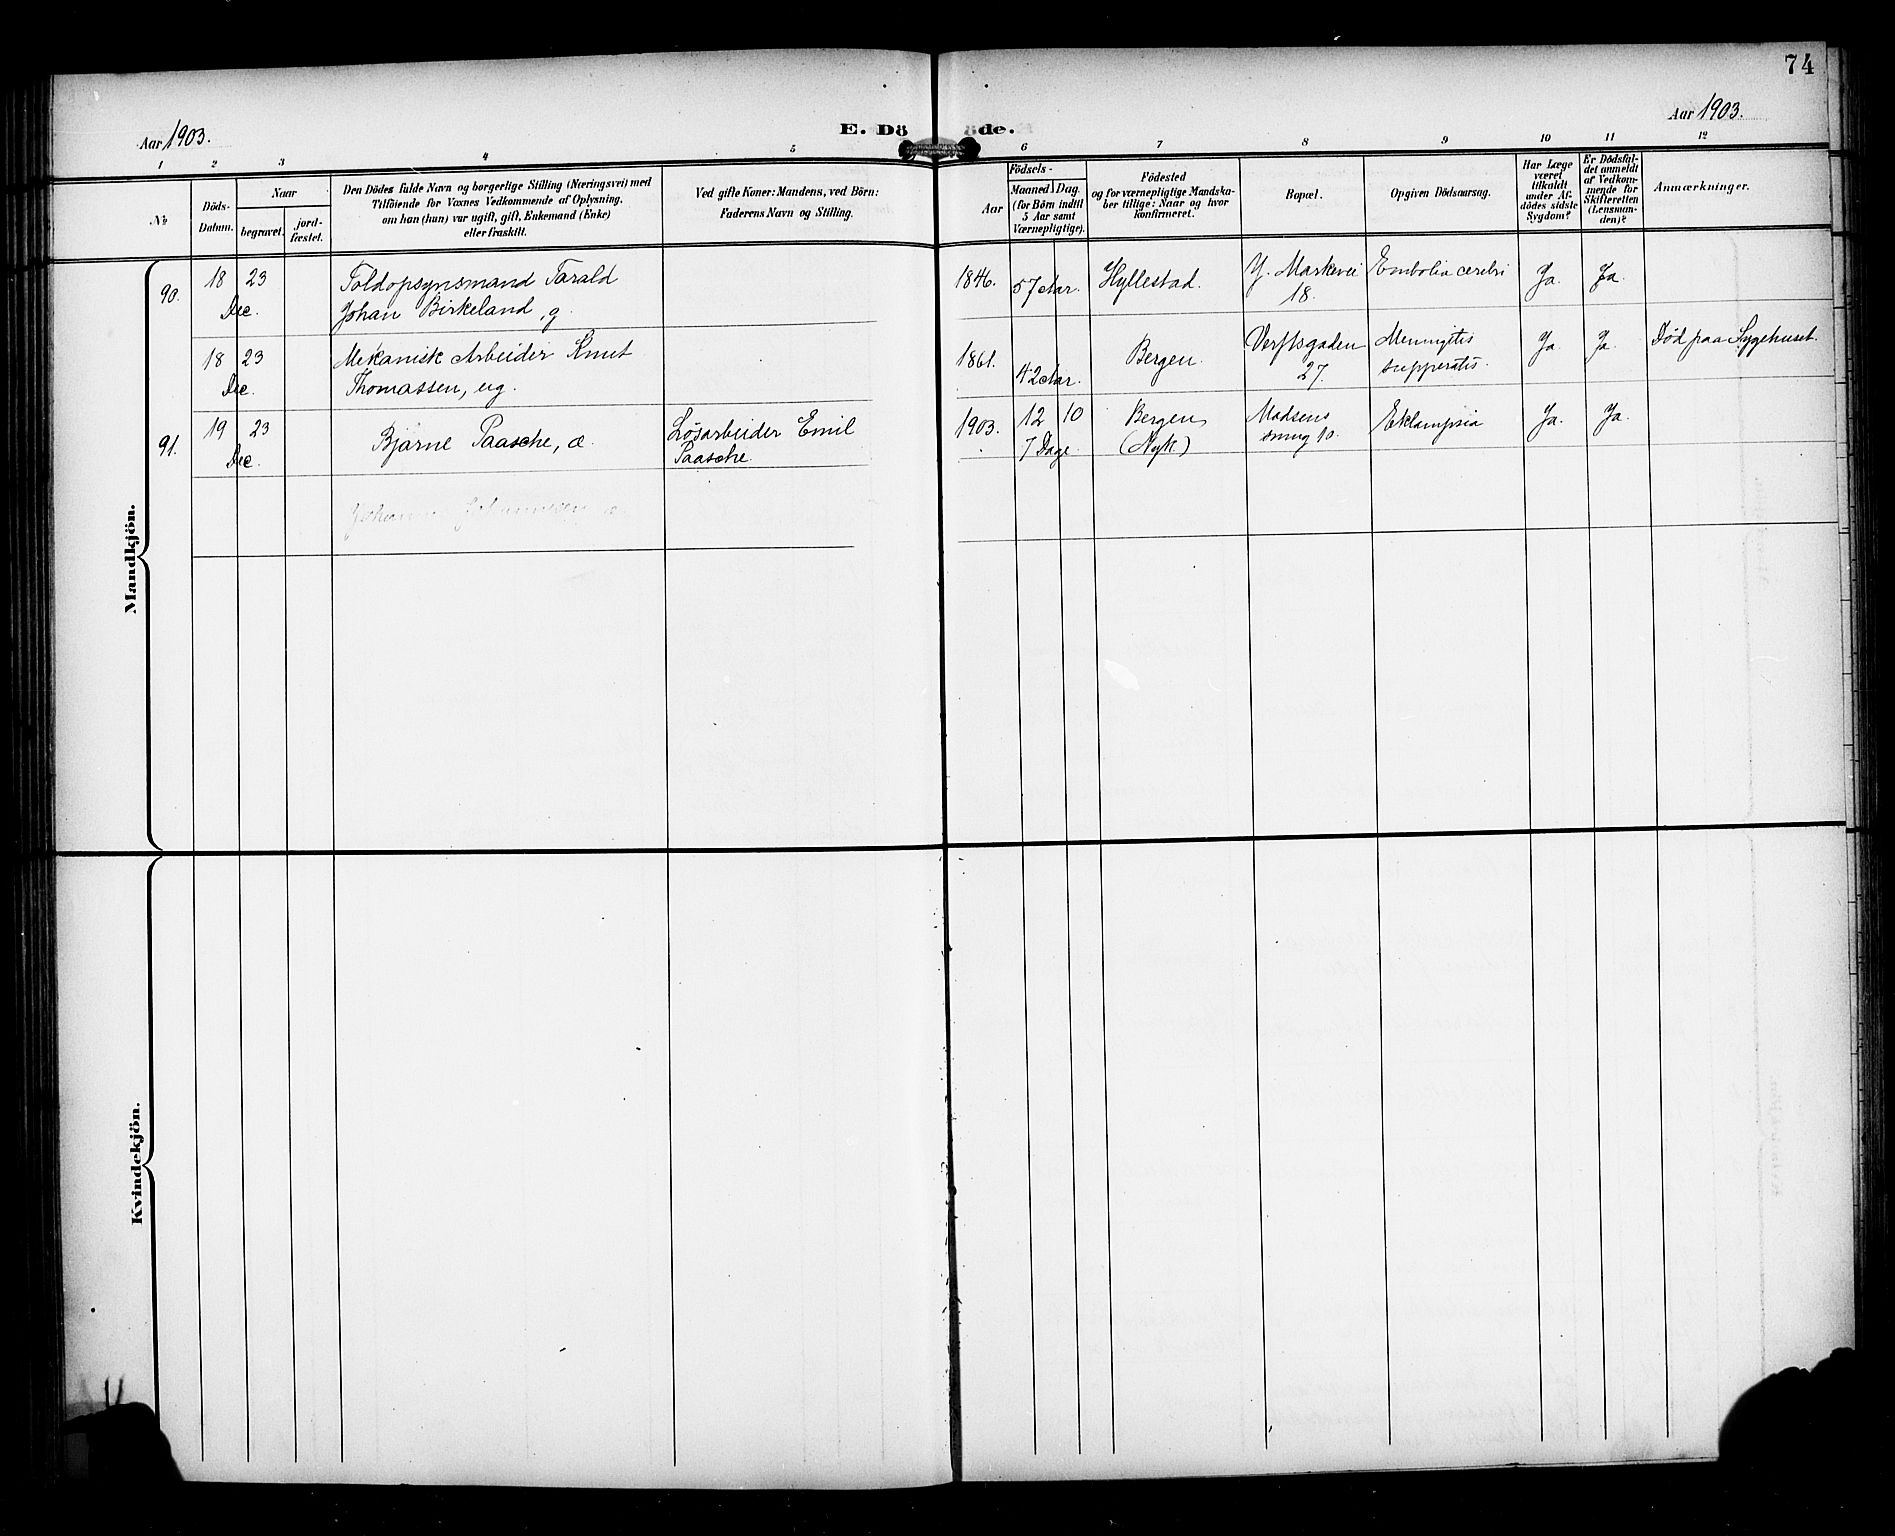 74
Aar 1903.
E. Döde.
Aar 1903.
1 2 3 4 5 6 7 8 9 10 11 12
No
Döds-
Datum.
Naar
begravet.
jord-
fæstet.
Den Dödes fulde Navn og borgerlige Stilling (Næringsvei) med
Tilföiende for Voxnes Vedkommende af Oplysning,
om han (hun) var ugift, gift, Enkemand (Enke)
eller fraskilt.
Ved gifte Koner: Mandens, ved Börn:
Faderens Navn og Stilling.
Födsels-
Aar
Maaned. Dag.
(for Börn indtil
5 Aar samt
Værnepligtige).
Födested
og for værnepligtige Mandska-
ber tillige: Naar og hvor
konfirmeret.
Bopæl.
Opgiven Dödsaarsag.
Har Læge
været
tilkaldt
under Af-
dödes sidste
Sygdom?
Er Dödsfal-
det anmeldt
af Vedkom-
mende for
Skifteretten
(Lensman-
den)?
Anmærkninger.
Mandkjön.
90.
18
Dec.
23
Toldopsynsmand Tarald
Johan Birkeland, g.
1846.
57 Aar.
Hyllestad.
Y. Markevei
18.
Embolia cerebri
Ja.
Ja.
18
Dec.
23
Mekanisk Arbeider Knut
Thomassen, ug.
1861.
42 Aar.
Bergen.
Verftsgaden
27.
Meningitis
Ja
Ja.
Död paa Sygehuset.
91.
19
Dec.
23
Bjarne Paasche, æ.
Løsarbeider Emil
Paasche.
1903.
12 10
7 Dage.
Bergen
(Nyk.)
Madsens
smug 10.
Eklampsia
Ja.
Ja.
Kvindekjön.